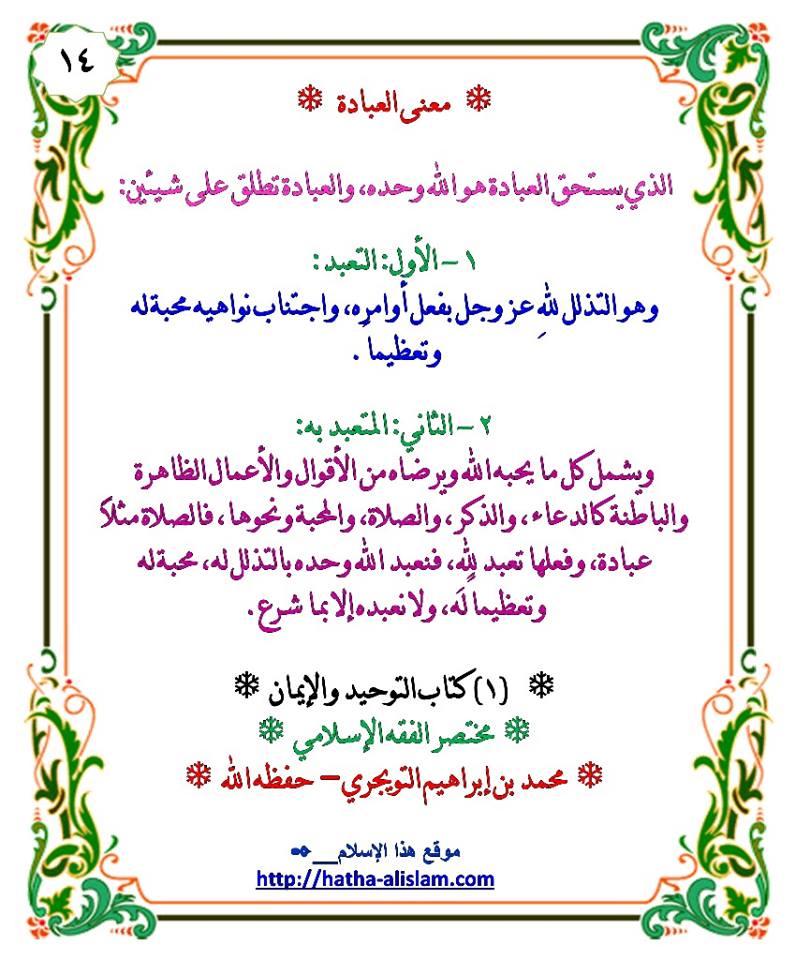 ١٤
❄ معنى العبادة ❄
الذي يستحق العبادة هو الله وحده، والعبادة تطلق على شيئين:
١ – الأول: التعبد :
وهو التذلل للهِ عز وجل بفعل أوامرِه، واجتناب نواهيه محبة له
وتعظيماً .
٢ – الثاني: المتعبد به:
ويشمل كل ما يحبه الله ويرضاه من الأقوال والأعمال الظاهرة
والباطنة كالدعاء، والذكر، والصلاة، والمحبة ونحوها، فالصلاة مثلاً
عبادة، وفعلها تعبد للهِ، فنعبد الله وحده بالتذلل له، محبة له
وتعظيماً لَه، ولا نعبده إلا بما شرع.
❄ (١) كتاب التوحيد والإيمان ❄
❄ مختصر الفقه الإسلامي ❄
❄ محمد بن إبراهيم التويجري – حفظه الله ❄
موقع هذا الإسلام__✑
http://hatha-alislam.com